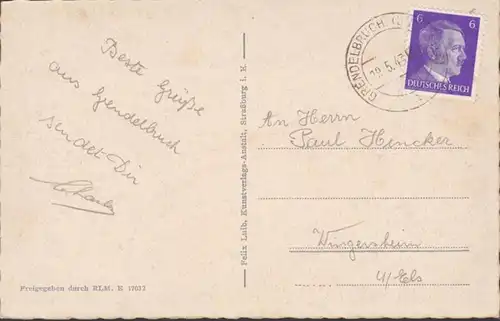 Beste Grüße
aus Grendelbuch
sendet Dir
Charles
Freigegeben durch RLM. E 12013
Felix Luib, Kunstverlags-Anstalt, Straßburg i. E.
GRENDELBRUCH
19.5.43
6 6
DEUTSCHES REICH
An Herrn
Paul Hincker
Wingersheim
U/Els